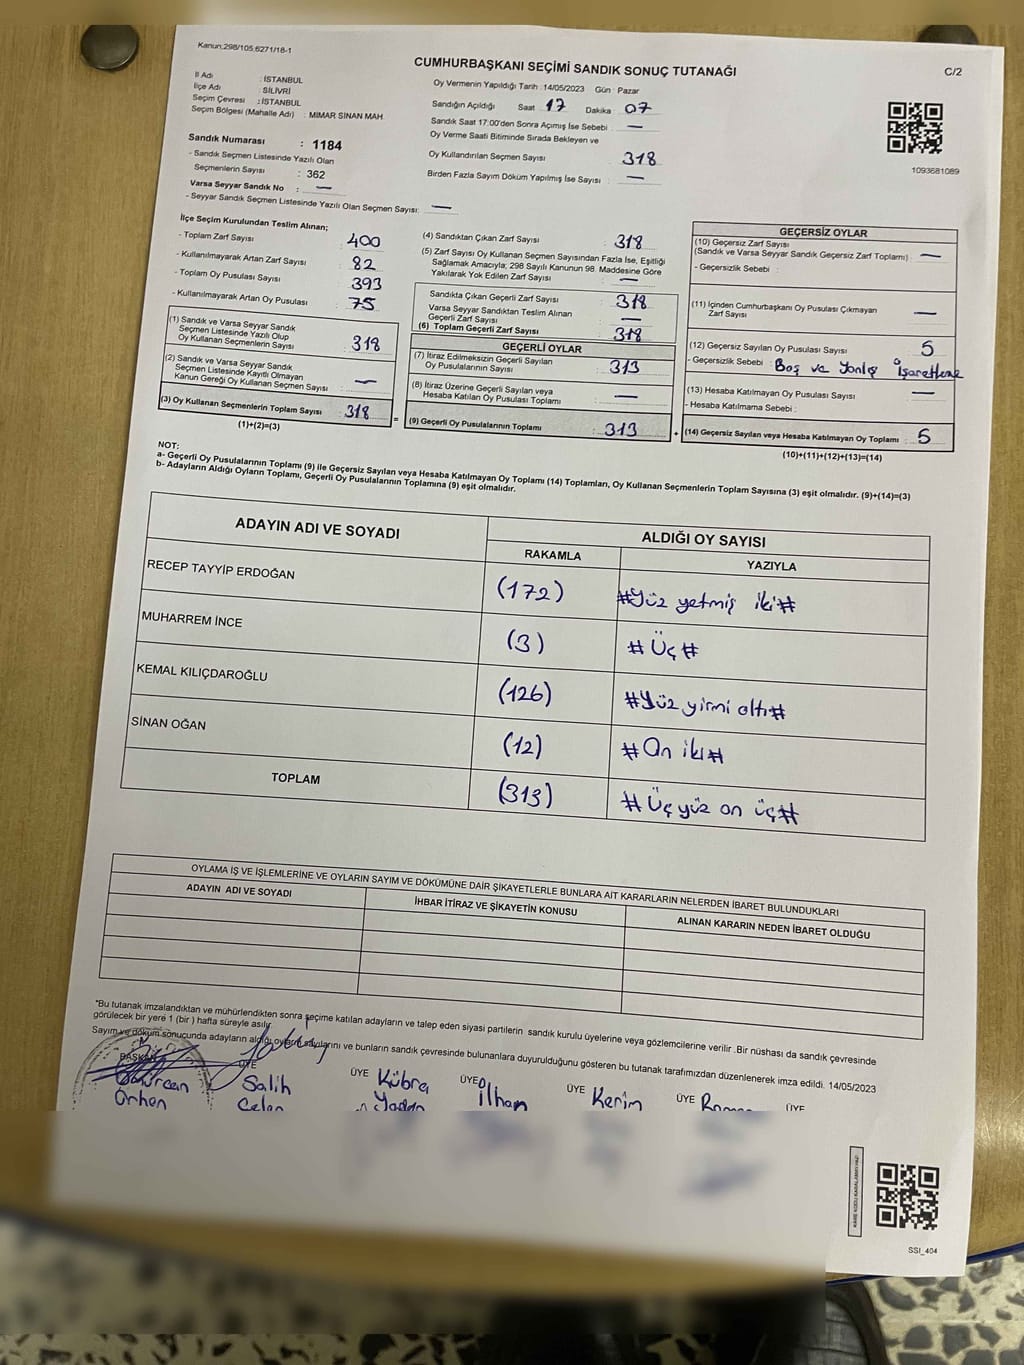 Kanun:298/105,6271/18-1
CUMHURBAŞKANI SEÇİMİ SANDIK SONUÇ TUTANAĞI
C/2
İl Adı : İSTANBUL
İlçe Adı : SİLİVRİ
Seçim Çevresi : İSTANBUL
Seçim Bölgesi (Mahalle Adı) : MİMAR SİNAN MAH.
Sandık Numarası : 1184
- Sandık Seçmen Listesinde Yazılı Olan
Seçmenlerin Sayısı : 362
Varsa Seyyar Sandık No : —
- Seyyar Sandık Seçmen Listesinde Yazılı Olan Seçmen Sayısı: —
Oy Vermenin Yapıldığı Tarih :14/05/2023 Gün : Pazar
Sandığın Açıldığı Saat 17 Dakika 07
Sandık Saat 17:00'den Sonra Açımış İse Sebebi : —
Oy Verme Saati Bitiminde Sırada Bekleyen ve
Oy Kullandırılan Seçmen Sayısı : 318
Birden Fazla Sayım Döküm Yapılmış İse Sayısı : —
1093681089
İlçe Seçim Kurulundan Teslim Alınan;
- Toplam Zarf Sayısı : 400
- Kullanılmayarak Artan Zarf Sayısı : 82
- Toplam Oy Pusulası Sayısı : 393
- Kullanılmayarak Artan Oy Pusulası : 75
(1) Sandık ve Varsa Seyyar Sandık
Seçmen Listesinde Yazılı Olup
Oy Kullanan Seçmenlerin Sayısı : 318
(2) Sandık ve Varsa Seyyar Sandık
Seçmen Listesinde Kayıtlı Olmayan
Kanun Gereği Oy Kullanan Seçmen Sayısı : —
(3) Oy Kullanan Seçmenlerin Toplam Sayısı : 318
(1)+(2)=(3)
(4) Sandıktan Çıkan Zarf Sayısı : 318
(5) Zarf Sayısı Oy Kullanan Seçmen Sayısından Fazla İse, Eşitliği
Sağlamak Amacıyla; 298 Sayılı Kanunun 98. Maddesine Göre
Yakılarak Yok Edilen Zarf Sayısı : —
Sandıkta Çıkan Geçerli Zarf Sayısı : 318
Varsa Seyyar Sandıktan Teslim Alınan
Geçerli Zarf Sayısı : —
(6) Toplam Geçerli Zarf Sayısı : 318
GEÇERLİ OYLAR
(7) İtiraz Edilmeksizin Geçerli Sayılan
Oy Pusulalarının Sayısı : 313
(8) İtiraz Üzerine Geçerli Sayılan veya
Hesaba Katılan Oy Pusulası Toplamı : —
(9) Geçerli Oy Pusulalarının Toplamı : 313
GEÇERSİZ OYLAR
(10) Geçersiz Zarf Sayısı
(Sandık ve Varsa Seyyar Sandık Geçersiz Zarf Toplamı) : —
- Geçersizlik Sebebi :
(11) İçinden Cumhurbaşkanı Oy Pusulası Çıkmayan
Zarf Sayısı : —
(12) Geçersiz Sayılan Oy Pusulası Sayısı : 5
- Geçersizlik Sebebi : Boş ve Yanlış işaretleme
(13) Hesaba Katılmayan Oy Pusulası Sayısı : —
- Hesaba Katılmama Sebebi :
(14) Geçersiz Sayılan veya Hesaba Katılmayan Oy Toplamı : 5
(10)+(11)+(12)+(13)=(14)
NOT:
a- Geçerli Oy Pusulalarının Toplamı (9) ile Geçersiz Sayılan veya Hesaba Katılmayan Oy Toplamı (14) Toplamları, Oy Kullanan Seçmenlerin Toplam Sayısına (3) eşit olmalıdır. (9)+(14)=(3)
b- Adayların Aldığı Oyların Toplamı, Geçerli Oy Pusulalarının Toplamına (9) eşit olmalıdır.
ADAYIN ADI VE SOYADI ALDIĞI OY SAYISI
RAKAMLA YAZIYLA
RECEP TAYYİP ERDOĞAN (172) #Yüz yetmiş iki#
MUHARREM İNCE (3) #Üç#
KEMAL KILIÇDAROĞLU (126) #Yüz yirmi altı#
SİNAN OĞAN (12) #On iki#
TOPLAM (313) #Üç yüz on üç#
OYLAMA İŞ VE İŞLEMLERİNE VE OYLARIN SAYIM VE DÖKÜMÜNE DAİR ŞİKAYETLERLE BUNLARA AİT KARARLARIN NELERDEN İBARET BULUNDUKLARI
ADAYIN ADI VE SOYADI İHBAR İTİRAZ VE ŞİKAYETİN KONUSU ALINAN KARARIN NEDEN İBARET OLDUĞU
"Bu tutanak imzalandıktan ve mühürlendikten sonra seçime katılan adayların ve talep eden siyasi partilerin sandık kurulu üyelerine veya gözlemcilerine verilir .Bir nüshası da sandık çevresinde
görülecek bir yere 1 (bir ) hafta süreyle asılır.
Sayım ve döküm sonucunda adayların aldığı oyların sayılarını ve bunların sandık çevresinde bulunanlara duyurulduğunu gösteren bu tutanak tarafımızdan düzenlenerek imza edildi. 14/05/2023
BAŞKAN ÜYE ÜYE ÜYE ÜYE ÜYE ÜYE
Salih Kübra İlham Kerim
Orhan
SSI_404